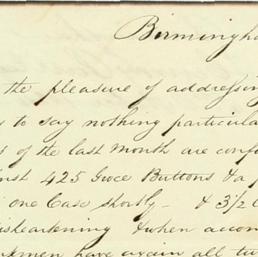 Birmingha
the pleasure of addressin
to say nothing particula
of the last Month are conf
inst 425 Groce Buttons &a
one Case shortly - & 3½
isheartening & when accom
kmen have again all tu